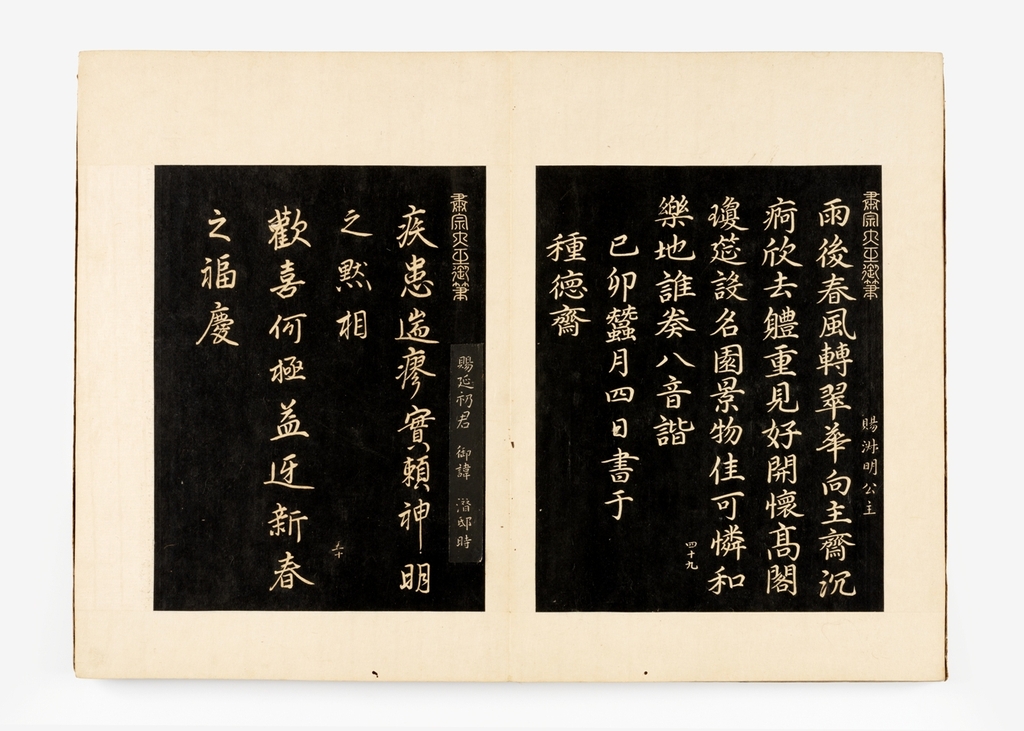 肅宗大王御筆
賜淑明公主
雨後春風轉翠華向主齋沉
痾欣去軆重見好開懷髙閣
瓊莚設名園景物佳可憐和
樂地誰奏八音諧
己卯蠶月四日書于
種德齋
四十九
肅宗大王御筆
賜延礽君 御諱 潛邸時
疾患遄瘳實賴神明
之默相
歡喜何極益迓新春
之福慶
五十